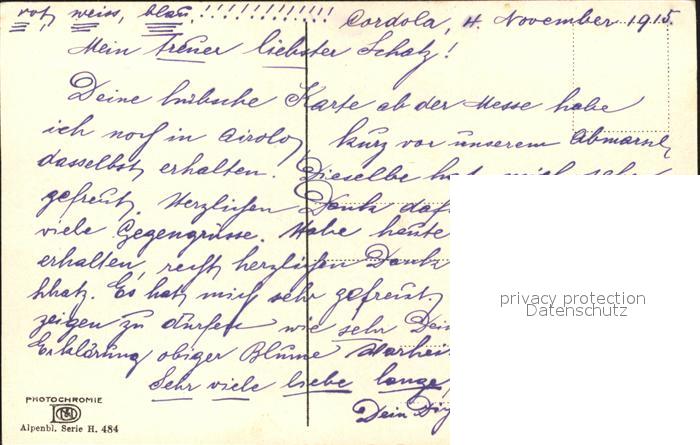 rot, weiss, blau!!!!!!!!!!!!!
Cordola, 4. November 1915.
Mein treuer liebster Schatz!
Deine hübsche Karte ab der Messe habe
ich noch in Airolo, kurz vor unserem Abmarsch
daselbst erhalten. Dieselbe hat mich sehr
gefreut. Herzlichen Dank
viele Gegengrüsse. Habe heute
erhalten, recht herzlichen Dank
Schatz. Es hat mich sehr gefreut,
zeigen zu dürfen wie sehr Dein
Erklärung obiger Blume
Sehr viele liebe lange,
Dein
privacy protection
Datenschutz
PHOTOCHROMIE
Alpenbl. Serie H. 484